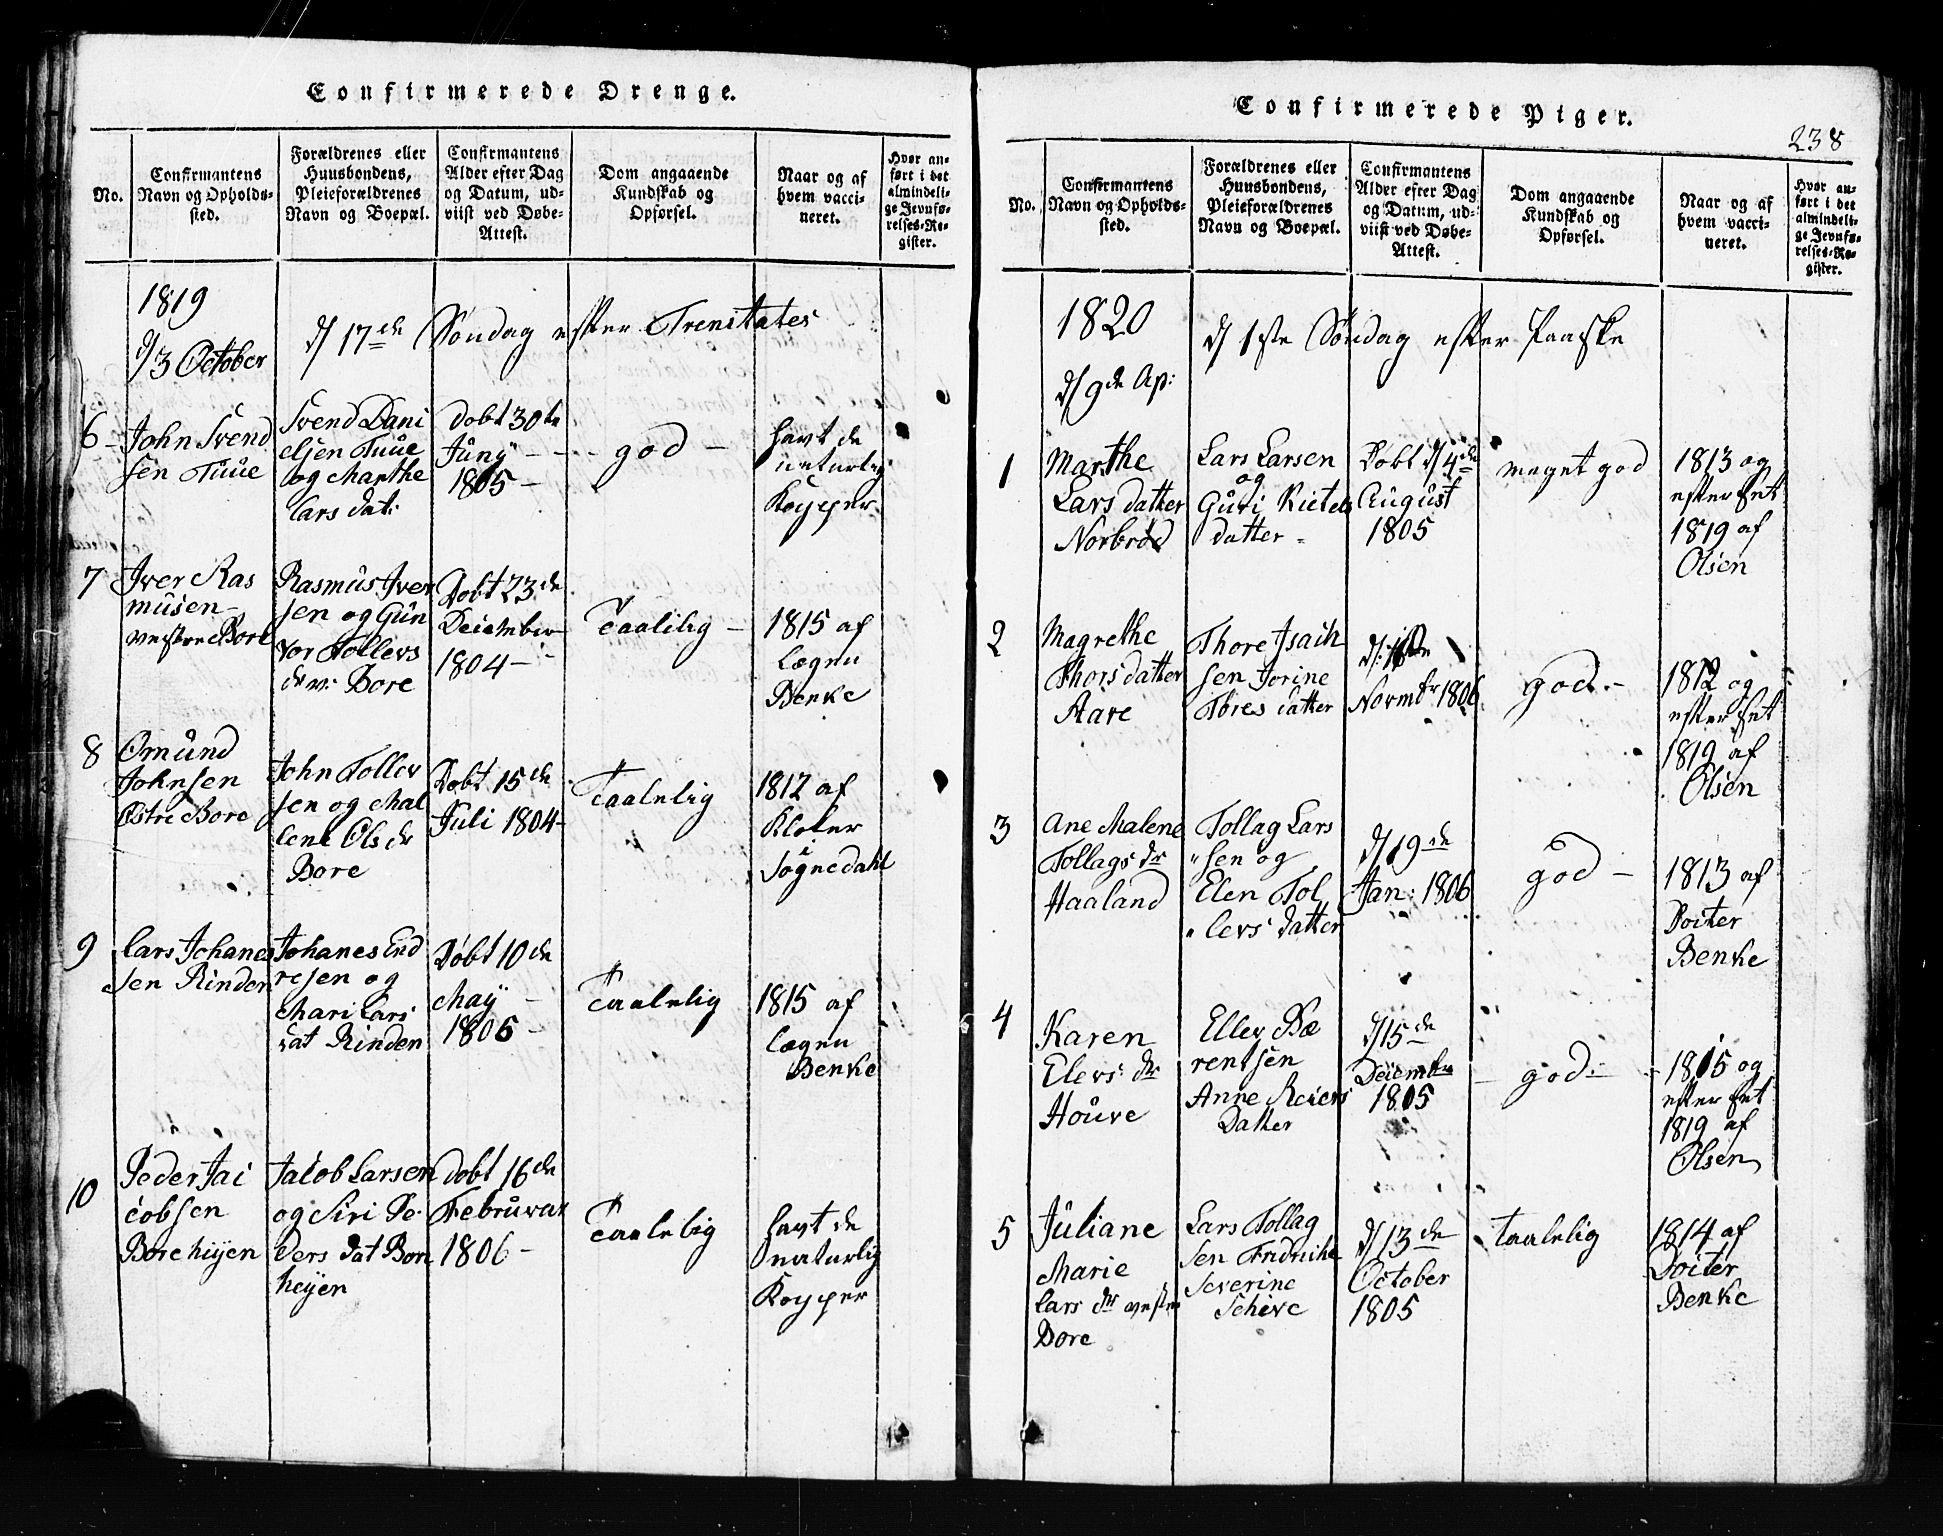 Confirmerede Drenge.
No.
Confirmantens
Navn og Opholds-
sted.
Forældrenes eller
Huusbondens,
Pleieforældrenes
Navn og Boepæl.
Confirmantens
Alder efter Dag
og Datum, ud-
viist ved Døbe-
Attest.
Dom angaaende
Kundskab og
Opførsel.
Naar og af
hvem vacci-
neret.
Hvor an-
ført i det
almindeli-
ge Jevnfø-
relses-Re-
gister.
1819
d/3 October
d/ 17de Søndag efter Trenitates
6
John Svend
sen Tuue
Svend Dani
elsen Tuue
og Marthe
Lars dat:
Døbt 30te
Juny
1805
god
havt de
naturlig
Kopper
7
Iver Ras
musen
vestre Bore
Rasmus Iver
sen og Gun
vor Tollevs
Bore
Døbt 23de
December
1804
Taalilig
1815 af
Lægen
Benke
8
Omund
Johnsen
Østre Bore
John Tollev
sen og Mal
lene Ols dr
Bore
Døbt 15de
Juli 1804
Taalelig
1812 af
Kloker
Sognedahl
9
Lars Johanes
sen Rinden
Johanes End
resen og
Mari Lars
dat Rinden
Døbt 10de
May
1805
Taalelig
1815 af
Lægen
Benke
10
Peder Jac
cobsen
Bore hiyen
Jacob Larsen
og Siri Pe
ders dat Bore
heyen
Døbt 16de
Februwar
1806
Taalelig
havt de
naturlig
Kopper
Confirmerede Piger.
238
No.
Confirmantens
Navn og Opholds-
sted.
Forældrenes eller
Huusbondens,
Pleieforældrenes
Navn og Boepæl.
Confirmantens
Alder efter Dag
og Datum, ud-
viist ved Døbe-
Attest.
Dom angaaende
Kundskab og
Opførsel.
Naar og af
hvem vacci-
neret.
Hvor an-
ført i det
almindeli-
ge Jevnfø-
relses-Re-
gister.
1820
d/ 9de Ap:
d/ 1ste Søndag efter Paaske
1
Marthe
Lars datter
Norbrød
Lars Larsen
og
Guri
datter
Døbt d/ 4de
August
1805
meget god
1813 og
efter set
1819 af
Olsen
2
Magrethe
Thors datter
Aare
Thore Isach
sen Jorine
Tores datter
Novmbr 1806
god
1812 og
efter set
1819 af
Olsen
3
Ane Malene
Tollags dr
Haaland
Tollag Lars
sen og
Elen Tol
levs datter
d/ 19de
Jan: 1806
god
1813 af
Docter
Benke
4
Karen
Elevs dr
Houve
Ellev Bæ
rentsen
Anne Reiers
Datter
d/15de
December
1805
god
1815 og
efter set
1819 af
Olsen
5
Juliane
Marie
Lars dr vestre
Bore
Lars Tollag
sen Fredrike
Severine
Schive
d/13de
October
1805
taalelig
1814 af
Docter
Benke